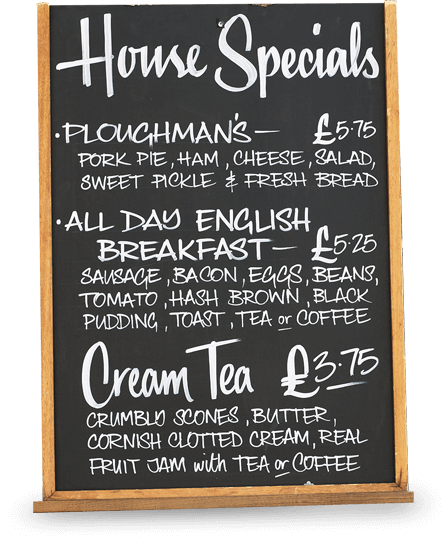 House Specials
• PLOUGHMAN'S — £5·75
PORK PIE, HAM, CHEESE, SALAD,
SWEET PICKLE & FRESH BREAD
• ALL DAY ENGLISH
BREAKFAST — £5·25
SAUSAGE, BACON, EGGS, BEANS,
TOMATO, HASH BROWN, BLACK
PUDDING, TOAST, TEA or COFFEE
Cream Tea £3·75
CRUMBLY SCONES, BUTTER,
CORNISH CLOTTED CREAM, REAL
FRUIT JAM with TEA or COFFEE